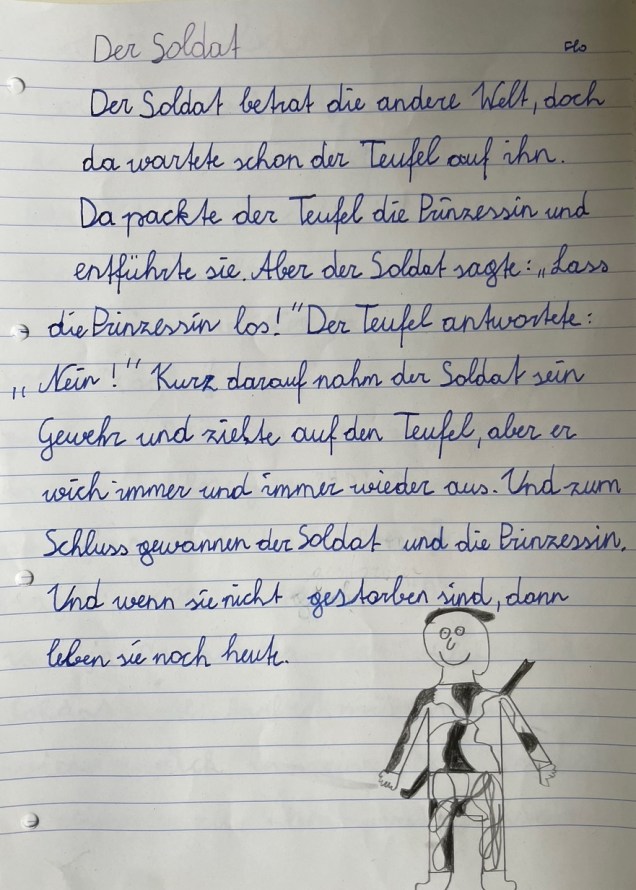 Der Soldat
Flo
Der Soldat betrat die andere Welt, doch
da wartete schon der Teufel auf ihn.
Da packte der Teufel die Prinzessin und
entführte sie. Aber der Soldat sagte: „Lass
die Prinzessin los!" Der Teufel antwortete:
„Nein!" Kurz darauf nahm der Soldat sein
Gewehr und zielte auf den Teufel, aber er
wich immer und immer wieder aus. Und zum
Schluss gewannen der Soldat und die Prinzessin.
Und wenn sie nicht gestorben sind, dann
leben sie noch heute.